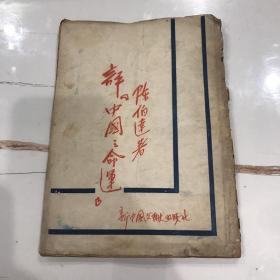 陈伯达著
评《中国之命运》
新中国出版社